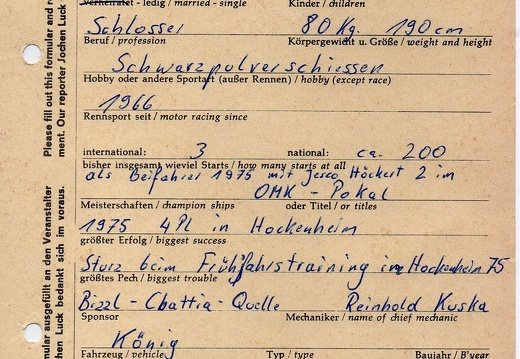 verheiratet - ledig / married - single Kinder / children
Schlosser 80 Kg. 190 cm
Beruf / profession Körpergewicht u. Größe / weight and height
Schwarzpulverschiessen
Hobby oder andere Sportart (außer Rennen) / hobby (except race)
1966
Rennsport seit / motor racing since
international: 3 national: ca. 200
bisher insgesamt wieviel Starts / how many starts at all
als Beifahrer 1975 mit Höckert 2 im
OMK - Pokal
Meisterschaften / champion ships oder Titel / or titles
1975 4 Pl in Hockenheim
größter Erfolg / biggest success
Sturz beim Frühjahrstraining in Hockenheim 75
größtes Pech / biggest trouble
Bizzl - Chattia - Quelle Reinhold Kuska
Sponsor Mechaniker / name of chief mechanic
König
Fahrzeug / vehicle Typ / type Baujahr / B'year
Please fill out this formular and re
ment. Our reporter Jochen Luck
mular ausgefüllt an den Veranstalter
chen Luck bedankt sich im voraus.